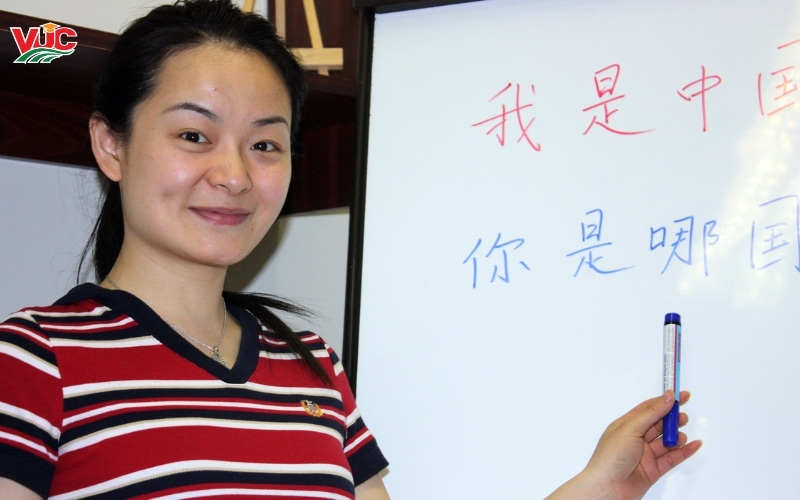 VUC
我是中国
你是哪国